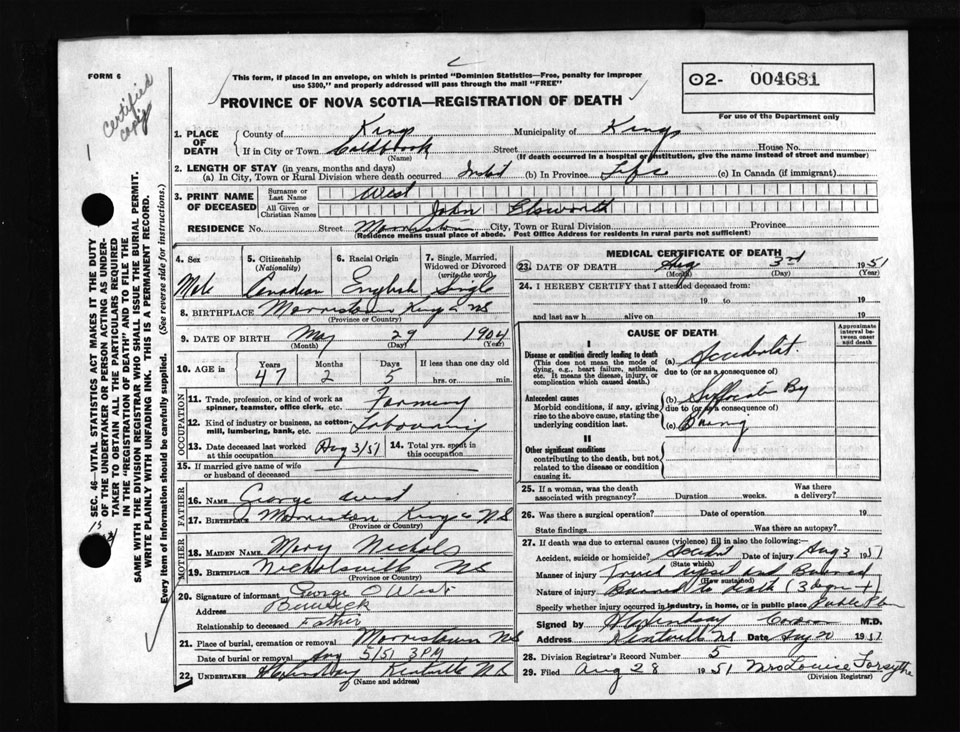 FORM 6
Certified copy
This form, if placed in an envelope, on which is printed "Dominion Statistics—Free, penalty for improper
use $300," and properly addressed will pass through the mail "FREE"
PROVINCE OF NOVA SCOTIA—REGISTRATION OF DEATH
02- 004681
For use of the Department only
1. PLACE OF DEATH County of Kings Municipality of Kings
If in City or Town Coldbrook (Name) Street House No.
(If death occurred in a hospital or institution, give the name instead of street and number)
2. LENGTH OF STAY (in years, months and days)
(a) In City, Town or Rural Division where death occurred (b) In Province Life (c) In Canada (if immigrant)
3. PRINT NAME OF DECEASED Surname or Last Name West
All Given or Christian Names John Elsworth
RESIDENCE No. Street Morristown City, Town or Rural Division Province
(Residence means usual place of abode. Post Office Address for residents in rural parts not sufficient)
4. Sex Male
5. Citizenship (Nationality) Canadian
6. Racial Origin English
7. Single, Married, Widowed or Divorced (write the word) Single
8. BIRTHPLACE Morristown Kings NS
(Province or Country)
9. DATE OF BIRTH May 29 1904
(Month) (Day) (Year)
10. AGE in Years 47 Months 2 Days 5 If less than one day old hrs. or min.
OCCUPATION
11. Trade, profession, or kind of work as spinner, teamster, office clerk, etc. Farming
12. Kind of industry or business, as cotton-mill, lumbering, bank, etc. Labouring
13. Date deceased last worked at this occupation Aug 3/51
14. Total yrs. spent in this occupation
15. If married give name of wife or husband of deceased
FATHER
16. NAME George West
17. BIRTHPLACE Morriston Kings NS
(Province or Country)
MOTHER
18. MAIDEN NAME Mary Nichols
19. BIRTHPLACE Nicholsville NS
(Province or Country)
20. Signature of informant George O West
Address Berwick
Relationship to deceased Father
21. Place of burial, cremation or removal Morristown NS
Date of burial or removal Aug 5/51 3 PM
22. UNDERTAKER Kentville NS
(Name and address)
MEDICAL CERTIFICATE OF DEATH
23. DATE OF DEATH Aug 3rd 1951
(Month) (Day) (Year)
24. I HEREBY CERTIFY that I attended deceased from:
19 to 19
and last saw h alive on 19
CAUSE OF DEATH
Approximate interval between onset and death
I
Disease or condition directly leading to death
(This does not mean the mode of dying, e.g., heart failure, asthenia, etc. It means the disease, injury, or complication which caused death.)
(a)
due to (or as a consequence of)
Antecedent causes
Morbid conditions, if any, giving rise to the above cause, stating the underlying condition last.
(b) By
due to (or as a consequence of)
(c)
II
Other significant conditions
contributing to the death, but not related to the disease or condition causing it.
25. If a woman, was the death associated with pregnancy? Duration weeks. Was there a delivery?
26. Was there a surgical operation? Date of operation 19
State findings Was there an autopsy?
27. If death was due to external causes (violence) fill in also the following:
Accident, suicide or homicide? Accident Date of injury Aug 3 1951
(State which)
Manner of injury Truck upset and Burned
(How sustained)
Nature of injury Burned to death (3 degree)
Specify whether injury occurred in industry, in home, or in public place Public Place
Signed by M.D.
Address Kentville NS Date Aug 20 1951
28. Division Registrar's Record Number 5
29. Filed Aug 28 1951 Mrs Louise Forsythe
(Division Registrar)
SEC. 46—VITAL STATISTICS ACT MAKES IT THE DUTY
OF THE UNDERTAKER OR PERSON ACTING AS UNDER-
TAKER TO OBTAIN ALL THE PARTICULARS REQUIRED
IN THE "REGISTRATION OF DEATH" AND TO FILE THE
SAME WITH THE DIVISION REGISTRAR WHO SHALL ISSUE THE BURIAL PERMIT.
WRITE PLAINLY WITH UNFADING INK. THIS IS A PERMANENT RECORD.
Every item of information should be carefully supplied. (See reverse side for instructions.)